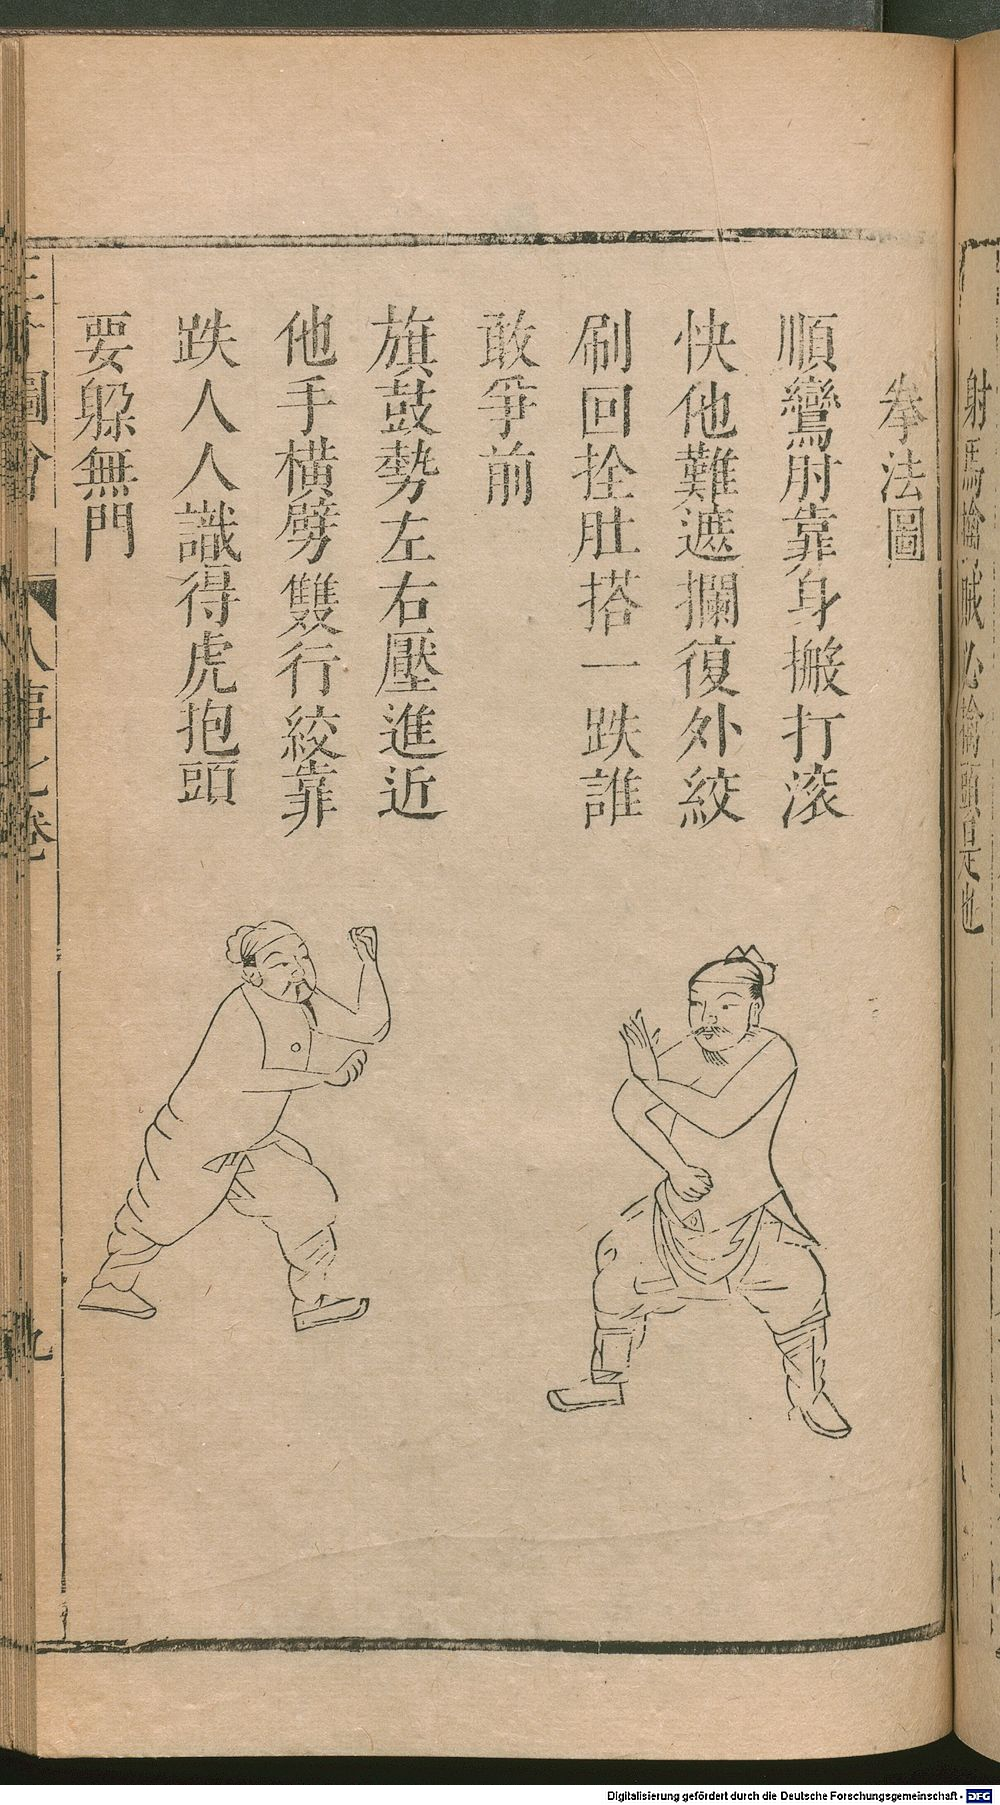 拳法圖
順鸞肘靠身搬打滾
快他難遮攔復外絞
刷回拴肚搭一跌誰
敢爭前
旗鼓勢左右壓進近
他手橫劈雙行絞靠
跌人人識得虎抱頭
要躱無門
圖會
人事七卷
九
是也
Digitalisierung gefördert durch die Deutsche Forschungsgemeinschaft - DFG